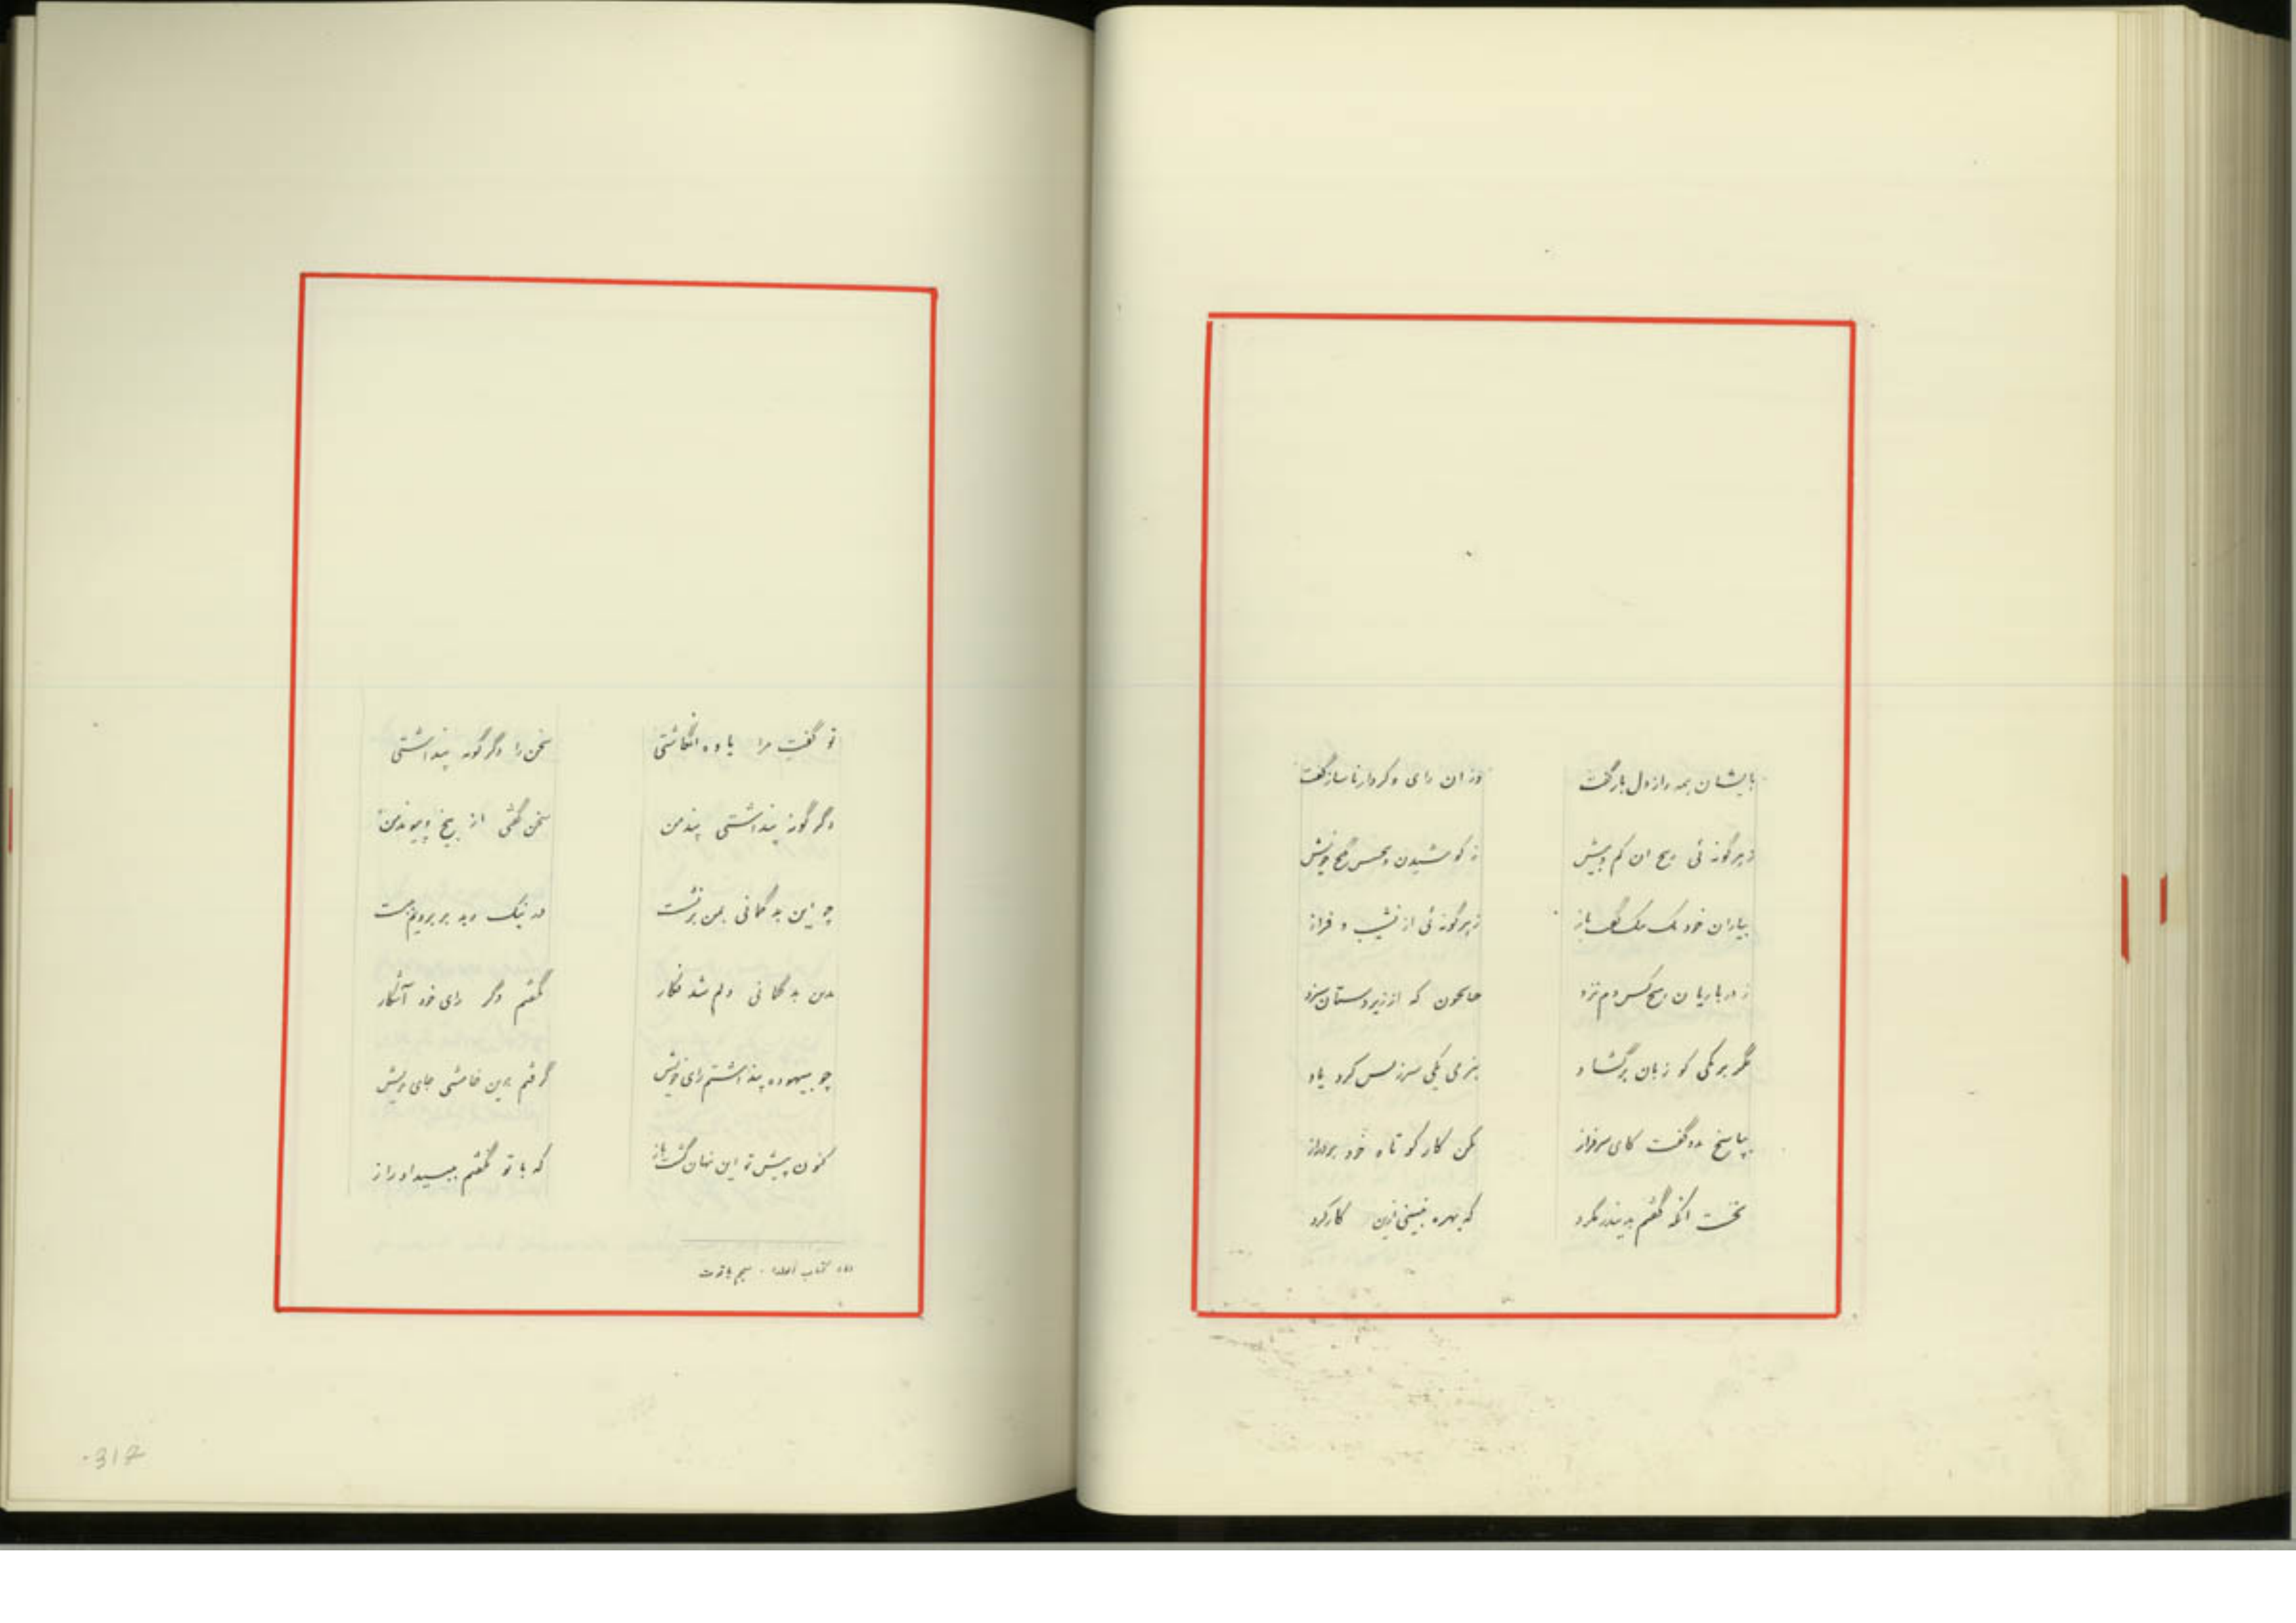 بایشان همه راز دل بازگفت وزان رای و کردار ناساز گفت
زهرگونه ئی رنج ان کم و بیش ز کوشیدن و گنج خویش
بیاران خود یک بیک گفت باز زهرگونه ئی از نشیب و فراز
ز درباریان هیچکس دم نزد که از زیردستان سزد
مگر برمکی کو زبان برگشاد بنرمی یکی سرزنش کرد یاد
بپاسخ بدو گفت کای سرفراز مکن کار کوتاه خود دراز
نخست انکه گفتم پدیدار کرد که بهره کار کرد
تو گفت مرا یاوه انگاشتی سخن را دگرگونه پنداشتی
دگرگونه پنداشتی پند من سخن گفتی از بیخ و پیوند من
چو این بدگمانی بمن برنشست در نیک و بد بر برویم ببست
بدین بدگمانی دلم شد فکار نگفتم دگر رای خود آشکار
چو بیهوده پنداشتم رای خویش گرفتم بدین خامشی جای خویش
کنون پیش تو این نهان گشت باز که با تو نگفتم راز
کتاب البلدان - معجم یاقوت
317